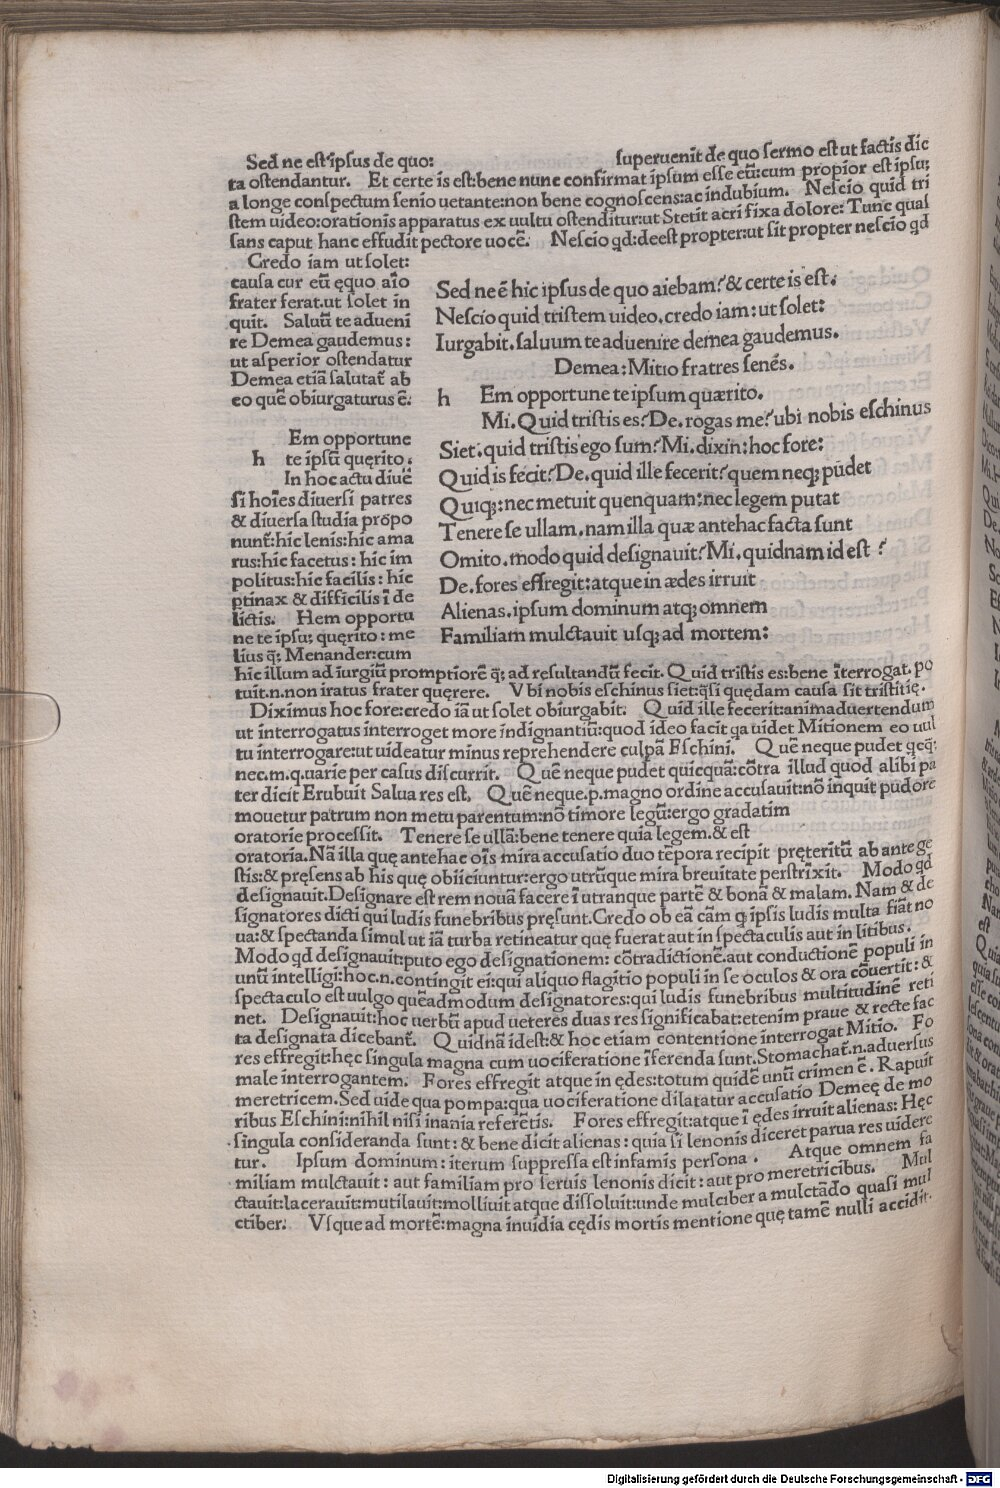 Sed ne est ip̄sus de quo: superuenit de quo sermo est ut factis dic
ta ostendantur. Et certe is est: bene nunc confirmat ipsum esse eū: cum propior est ipsuꝫ
a longe conspectum senio uetante: non bene cognoscens: ac indubium. Nescio quid tri
stem uideo: orationis apparatus ex uultu ostenditur: ut Stetit acri fixa dolore: Tunc quas
sans caput hanc effudit pectore uocē. Nescio qd: deest propter: ut sit propter nescio qd
Credo iam ut solet:
causa cur eū ęquo aīo
frater ferat. ut solet in
quit. Saluū te adueni
re Demea gaudemus:
ut asperior ostendatur
Demea etiā salutat̄ ab
eo quē obiurgaturus ē.
Em opportune
h te ipsū quęrito.
In hoc actu diuē
si hoīes diuersi patres
& diuersa studia prōpo
nunt̄: hic lenis: hic ama
rus: hic facetus: hic im
politus: hic facilis: hic
ꝑtinax & difficilis ī de
lictis. Hem opportu
ne te ipsuꝫ quęrito: me
lius qꝫ Menander: cum
Sed ne ē hic ipsus de quo aiebam? & certe is est.
Nescio quid tristem uideo. credo iam: ut solet:
Iurgabit. saluum te aduenire demea gaudemus.
Demea: Mitio fratres senēs.
h Em opportune te ipsum quærito.
Mi. Quid tristis es? De. rogas me? ubi nobis eschinus
Siet. quid tristis ego sum? Mi. dixin: hoc fore:
Quid is fecit? De. quid ille fecerit? quem neqꝫ pūdet
Quiqꝫ: nec metuit quenquam: nec legem putat
Tenere se ullam. nam illa quæ antehac facta sunt
Omito. modo quid designauit? Mi. quidnam id est ?
De. fores effregit: atque in ædes irruit
Alienas. ipsum dominum atqꝫ omnem
Familiam mulctauit usqꝫ ad mortem:
hic illum ad iurgiū promptiorē qꝫ ad resultandū fecit. Quid tristis es: bene īterrogat. po
tuit. n. non iratus frater quęrere. Vbi nobis eschinus siet: q̄si quędam causa sit tristitię.
Diximus hoc fore: credo iā ut solet obiurgabit. Quid ille fecerit: animaduertendum
ut interrogatus interroget more indignantiū: quod ideo facit qa uidet Mitionem eo uul
tu interrogare: ut uideatur minus reprehendere culpā Eschini. Quē neque pudet qcqꝫ
nec. m. q. uarie per casus discurrit. Quē neque pudet quicquā: cōtra illud quod alibi pa
ter dicit Erubuit Salua res est, Quē neque. p. magno ordine accusauit: nō inquit pudore
mouetur patrum non metu parentum: nō timore legū: ergo gradatim
oratorie processit. Tenere se ullā: bene tenere quia legem. & est
oratoria. Nā illa quę antehac oīs mira accusatio duo tēpora recipit pręteritū ab ante ge
stis: & pręsens ab his quę obiiciuntur: ergo utrūque mira breuitate perstrīxit. Modo qd
designauit. Designare est rem nouā facere ī utranque partē & bonā & malam. Nam & de
signatores dicti qui ludis funebribus pręsunt. Credo ob eā cām ꝙ ipsis ludis multa fiāt no
ua: & spectanda simul ut iā turba retineatur quę fuerat aut in spectaculis aut in litibus.
Modo qd designauit: puto ego designationem: cōtradictionē. aut conductionē populi in
unū intelligi: hoc. n. contingit ei: qui aliquo flagitio populi in se oculos & ora cōuertit: &
spectaculo est uulgo quēadmodum designatores: qui ludis funebribus multitudinē reti
net. Designauit: hoc uerbū apud ueteres duas res significabat: etenim praue & recte fac
ta designata dicebant̄. Quidnā idest: & hoc etiam contentione interrogat Mitio. Fo
res effregit: hęc singula magna cum uociferatione īferenda sunt. Stomachat̄. n. aduersus
male interrogantem. Fores effregit atque in ędes: totum quidē unū crimen ē. Rapuit
meretricem. Sed uide qua pompa: qua uociferatione dilatatur accusatio Demeę de mo
ribus Eschini: nihil nisi inania referētis. Fores effregit: atque ī ędes irruit alienas: Hęc
singula consideranda sunt: & bene dicit alienas: quia si lenonis diceret parua res uidere
tur. Ipsum dominum: iterum suppressa est infamis persona. Atque omnem fa
miliam mulctauit: aut familiam pro seruis lenonis dicit: aut pro meretricibus. Mul
ctauit: lacerauit: mutilauit: molliuit atque dissoluit: unde mulciber a mulctādo quasi mul
ctiber. Vsque ad mortē: magna inuidia cędis mortis mentione quę tamē nulli accidit.
Digitalisierung gefördert durch die Deutsche Forschungsgemeinschaft - DFG